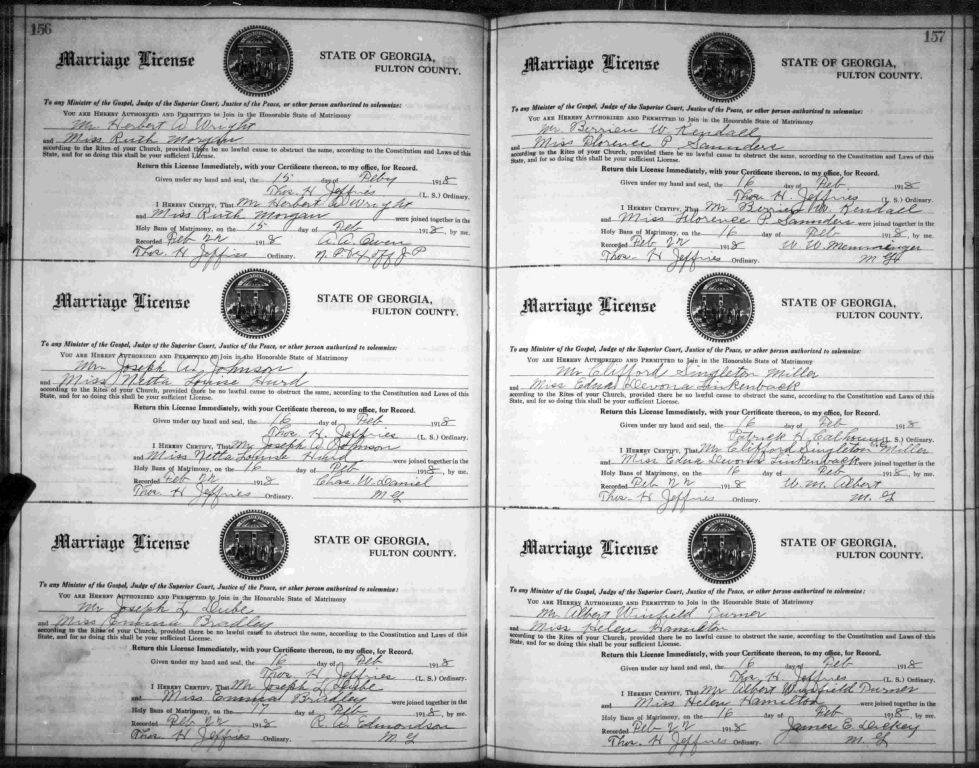 156
Marriage License
STATE OF GEORGIA,
FULTON COUNTY.
To any Minister of the Gospel, Judge of the Superior Court, Justice of the Peace, or other person authorized to solemnize:
YOU ARE HEREBY AUTHORIZED AND PERMITTED to Join in the Honorable State of Matrimony
Mr Herbert W Wright
and Miss Ruth Morgan
according to the Rites of your Church, provided there be no lawful cause to obstruct the same, according to the Constitution and Laws of this
State, and for so doing this shall be your sufficient License.
Return this License Immediately, with your Certificate thereon, to my office, for Record.
Given under my hand and seal, the 15 day of Feby 1918
Thos. H Jeffries (L. S.) Ordinary.
I HEREBY CERTIFY, That Mr Herbert W Wright
and Miss Ruth Morgan were joined together in the
Holy Bans of Matrimony, on the 15 day of Feb 1918, by me.
Recorded Feb 22 1918 A. A. Owen
Thos. H Jeffries Ordinary. J P
Marriage License
STATE OF GEORGIA,
FULTON COUNTY.
To any Minister of the Gospel, Judge of the Superior Court, Justice of the Peace, or other person authorized to solemnize:
YOU ARE HEREBY AUTHORIZED AND PERMITTED to Join in the Honorable State of Matrimony
Mr Joseph W Johnson
and Miss Netta Louise Hurd
according to the Rites of your Church, provided there be no lawful cause to obstruct the same, according to the Constitution and Laws of this
State, and for so doing this shall be your sufficient License.
Return this License Immediately, with your Certificate thereon, to my office, for Record.
Given under my hand and seal, the 16 day of Feb 1918
Thos. H. Jeffries (L. S.) Ordinary.
I HEREBY CERTIFY, That Mr Joseph W Johnson
and Miss Netta Louise Hurd were joined together in the
Holy Bans of Matrimony, on the 16 day of Feb 1918, by me.
Recorded Feb 22 1918 Chas. W. Daniel
Thos. H Jeffries Ordinary. M. G
Marriage License
STATE OF GEORGIA,
FULTON COUNTY.
To any Minister of the Gospel, Judge of the Superior Court, Justice of the Peace, or other person authorized to solemnize:
YOU ARE HEREBY AUTHORIZED AND PERMITTED to Join in the Honorable State of Matrimony
Mr Joseph L Dube
and Miss Emma Bradley
according to the Rites of your Church, provided there be no lawful cause to obstruct the same, according to the Constitution and Laws of this
State, and for so doing this shall be your sufficient License.
Return this License Immediately, with your Certificate thereon, to my office, for Record.
Given under my hand and seal, the 16 day of Feb 1918
Thos. H Jeffries (L. S.) Ordinary.
I HEREBY CERTIFY, That Mr Joseph L Dube
and Miss Emma Bradley were joined together in the
Holy Bans of Matrimony, on the 17 day of Feb 1918, by me.
Recorded Feb 22 1918 R. W. Edmondson
Thos. H Jeffries Ordinary. M. G
157
Marriage License
STATE OF GEORGIA,
FULTON COUNTY.
To any Minister of the Gospel, Judge of the Superior Court, Justice of the Peace, or other person authorized to solemnize:
YOU ARE HEREBY AUTHORIZED AND PERMITTED to Join in the Honorable State of Matrimony
Mr Berrien W. Kendall
and Miss Florence P Saunders
according to the Rites of your Church, provided there be no lawful cause to obstruct the same, according to the Constitution and Laws of this
State, and for so doing this shall be your sufficient License.
Return this License Immediately, with your Certificate thereon, to my office, for Record.
Given under my hand and seal, the 16 day of Feb 1918
Thos. H. Jeffries (L. S.) Ordinary.
I HEREBY CERTIFY, That Mr Berrien W. Kendall
and Miss Florence P Saunders were joined together in the
Holy Bans of Matrimony, on the 16 day of Feb 1918, by me.
Recorded Feb 22 1918 W. W. Memminger
Thos. H Jeffries Ordinary. M G
Marriage License
STATE OF GEORGIA,
FULTON COUNTY.
To any Minister of the Gospel, Judge of the Superior Court, Justice of the Peace, or other person authorized to solemnize:
YOU ARE HEREBY AUTHORIZED AND PERMITTED to Join in the Honorable State of Matrimony
Mr Clifford Singleton Miller
and Miss Edna Devona Linkenback
according to the Rites of your Church, provided there be no lawful cause to obstruct the same, according to the Constitution and Laws of this
State, and for so doing this shall be your sufficient License.
Return this License Immediately, with your Certificate thereon, to my office, for Record.
Given under my hand and seal, the 16 day of Feb 1918
Patrick H. Calhoun (L. S.) Ordinary.
I HEREBY CERTIFY, That Mr Clifford Singleton Miller
and Miss Edna Devona Linkenback were joined together in the
Holy Bans of Matrimony, on the 16 day of Feb 1918, by me.
Recorded Feb 22 1918 W. M. Albert
Thos. H Jeffries Ordinary. M. G
Marriage License
STATE OF GEORGIA,
FULTON COUNTY.
To any Minister of the Gospel, Judge of the Superior Court, Justice of the Peace, or other person authorized to solemnize:
YOU ARE HEREBY AUTHORIZED AND PERMITTED to Join in the Honorable State of Matrimony
Mr Albert Winfield Turner
and Miss Helen Hamilton
according to the Rites of your Church, provided there be no lawful cause to obstruct the same, according to the Constitution and Laws of this
State, and for so doing this shall be your sufficient License.
Return this License Immediately, with your Certificate thereon, to my office, for Record.
Given under my hand and seal, the 16 day of Feb 1918
Thos. H. Jeffries (L. S.) Ordinary.
I HEREBY CERTIFY, That Mr Albert Winfield Turner
and Miss Helen Hamilton were joined together in the
Holy Bans of Matrimony, on the 16 day of Feb 1918, by me.
Recorded Feb 22 1918 James E. Dickey
Thos. H Jeffries Ordinary. M. G